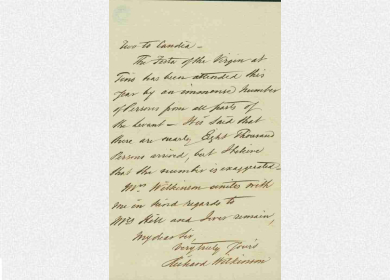 two to Candia –
The Festa of the Virgin at
Tinos has been attended this
year by an immense number
of Persons from all parts of
the Levant – 'tis said that
there are nearly Eight Thousand
Persons arrived, but I believe
that the number is exaggerated –
Mrs Wilkinson unites with
me in kind regards to
Mrs Hill and I ever remain,
My dear Sir,
Very truly Yours
Richard Wilkinson